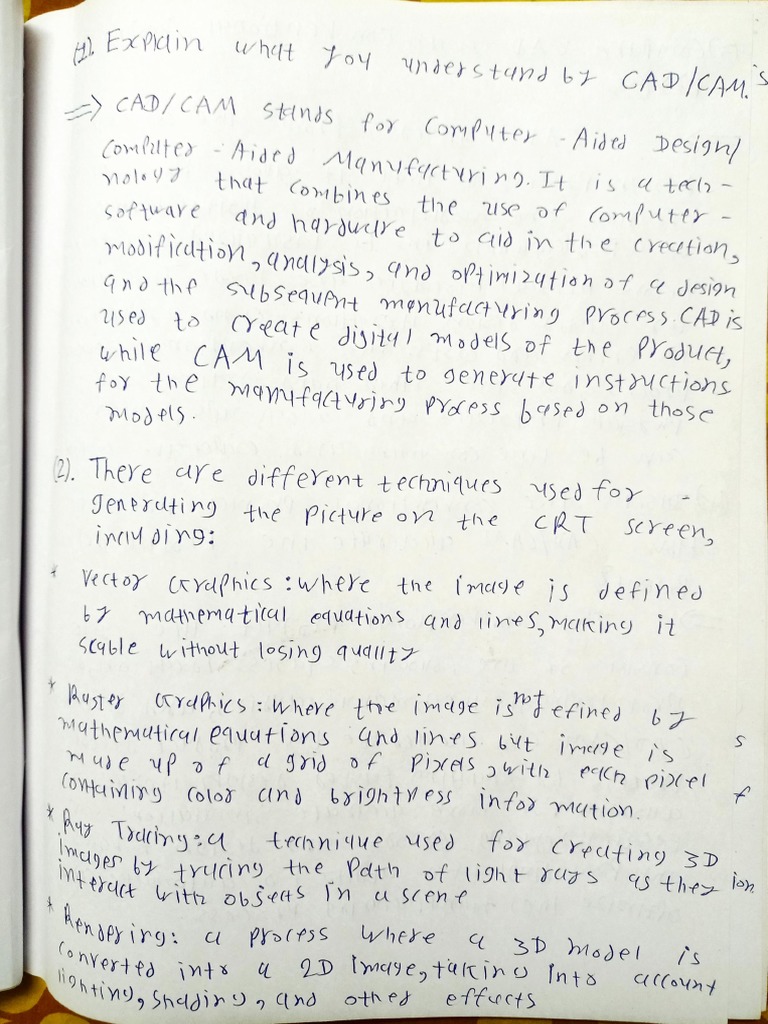 (1). Explain what you understand by CAD/CAM.
=> CAD/CAM stands for Computer - Aided Design/
Computer - Aided Manufacturing. It is a tech-
nology that combines the use of computer -
software and hardware to aid in the creation,
modification, analysis, and optimization of a design
and the subsequent manufacturing process. CAD is
used to create digital models of the product,
while CAM is used to generate instructions
for the manufacturing process based on those
models.
(2). There are different techniques used for -
generating the picture on the CRT screen,
including:
* Vector Graphics: where the image is defined
by mathematical equations and lines, making it
scable without losing quality
* Raster Graphics: where the image is not defined by
mathematical equations and lines but image is
made up of a grid of pixels, with each pixel
containing color and brightness information.
* Ray Tracing: a technique used for creating 3D
images by tracing the path of light rays as they
interact with objects in a scene
* Rendering: a process where a 3D model is
converted into a 2D image, taking into account
lighting, shading, and other effects